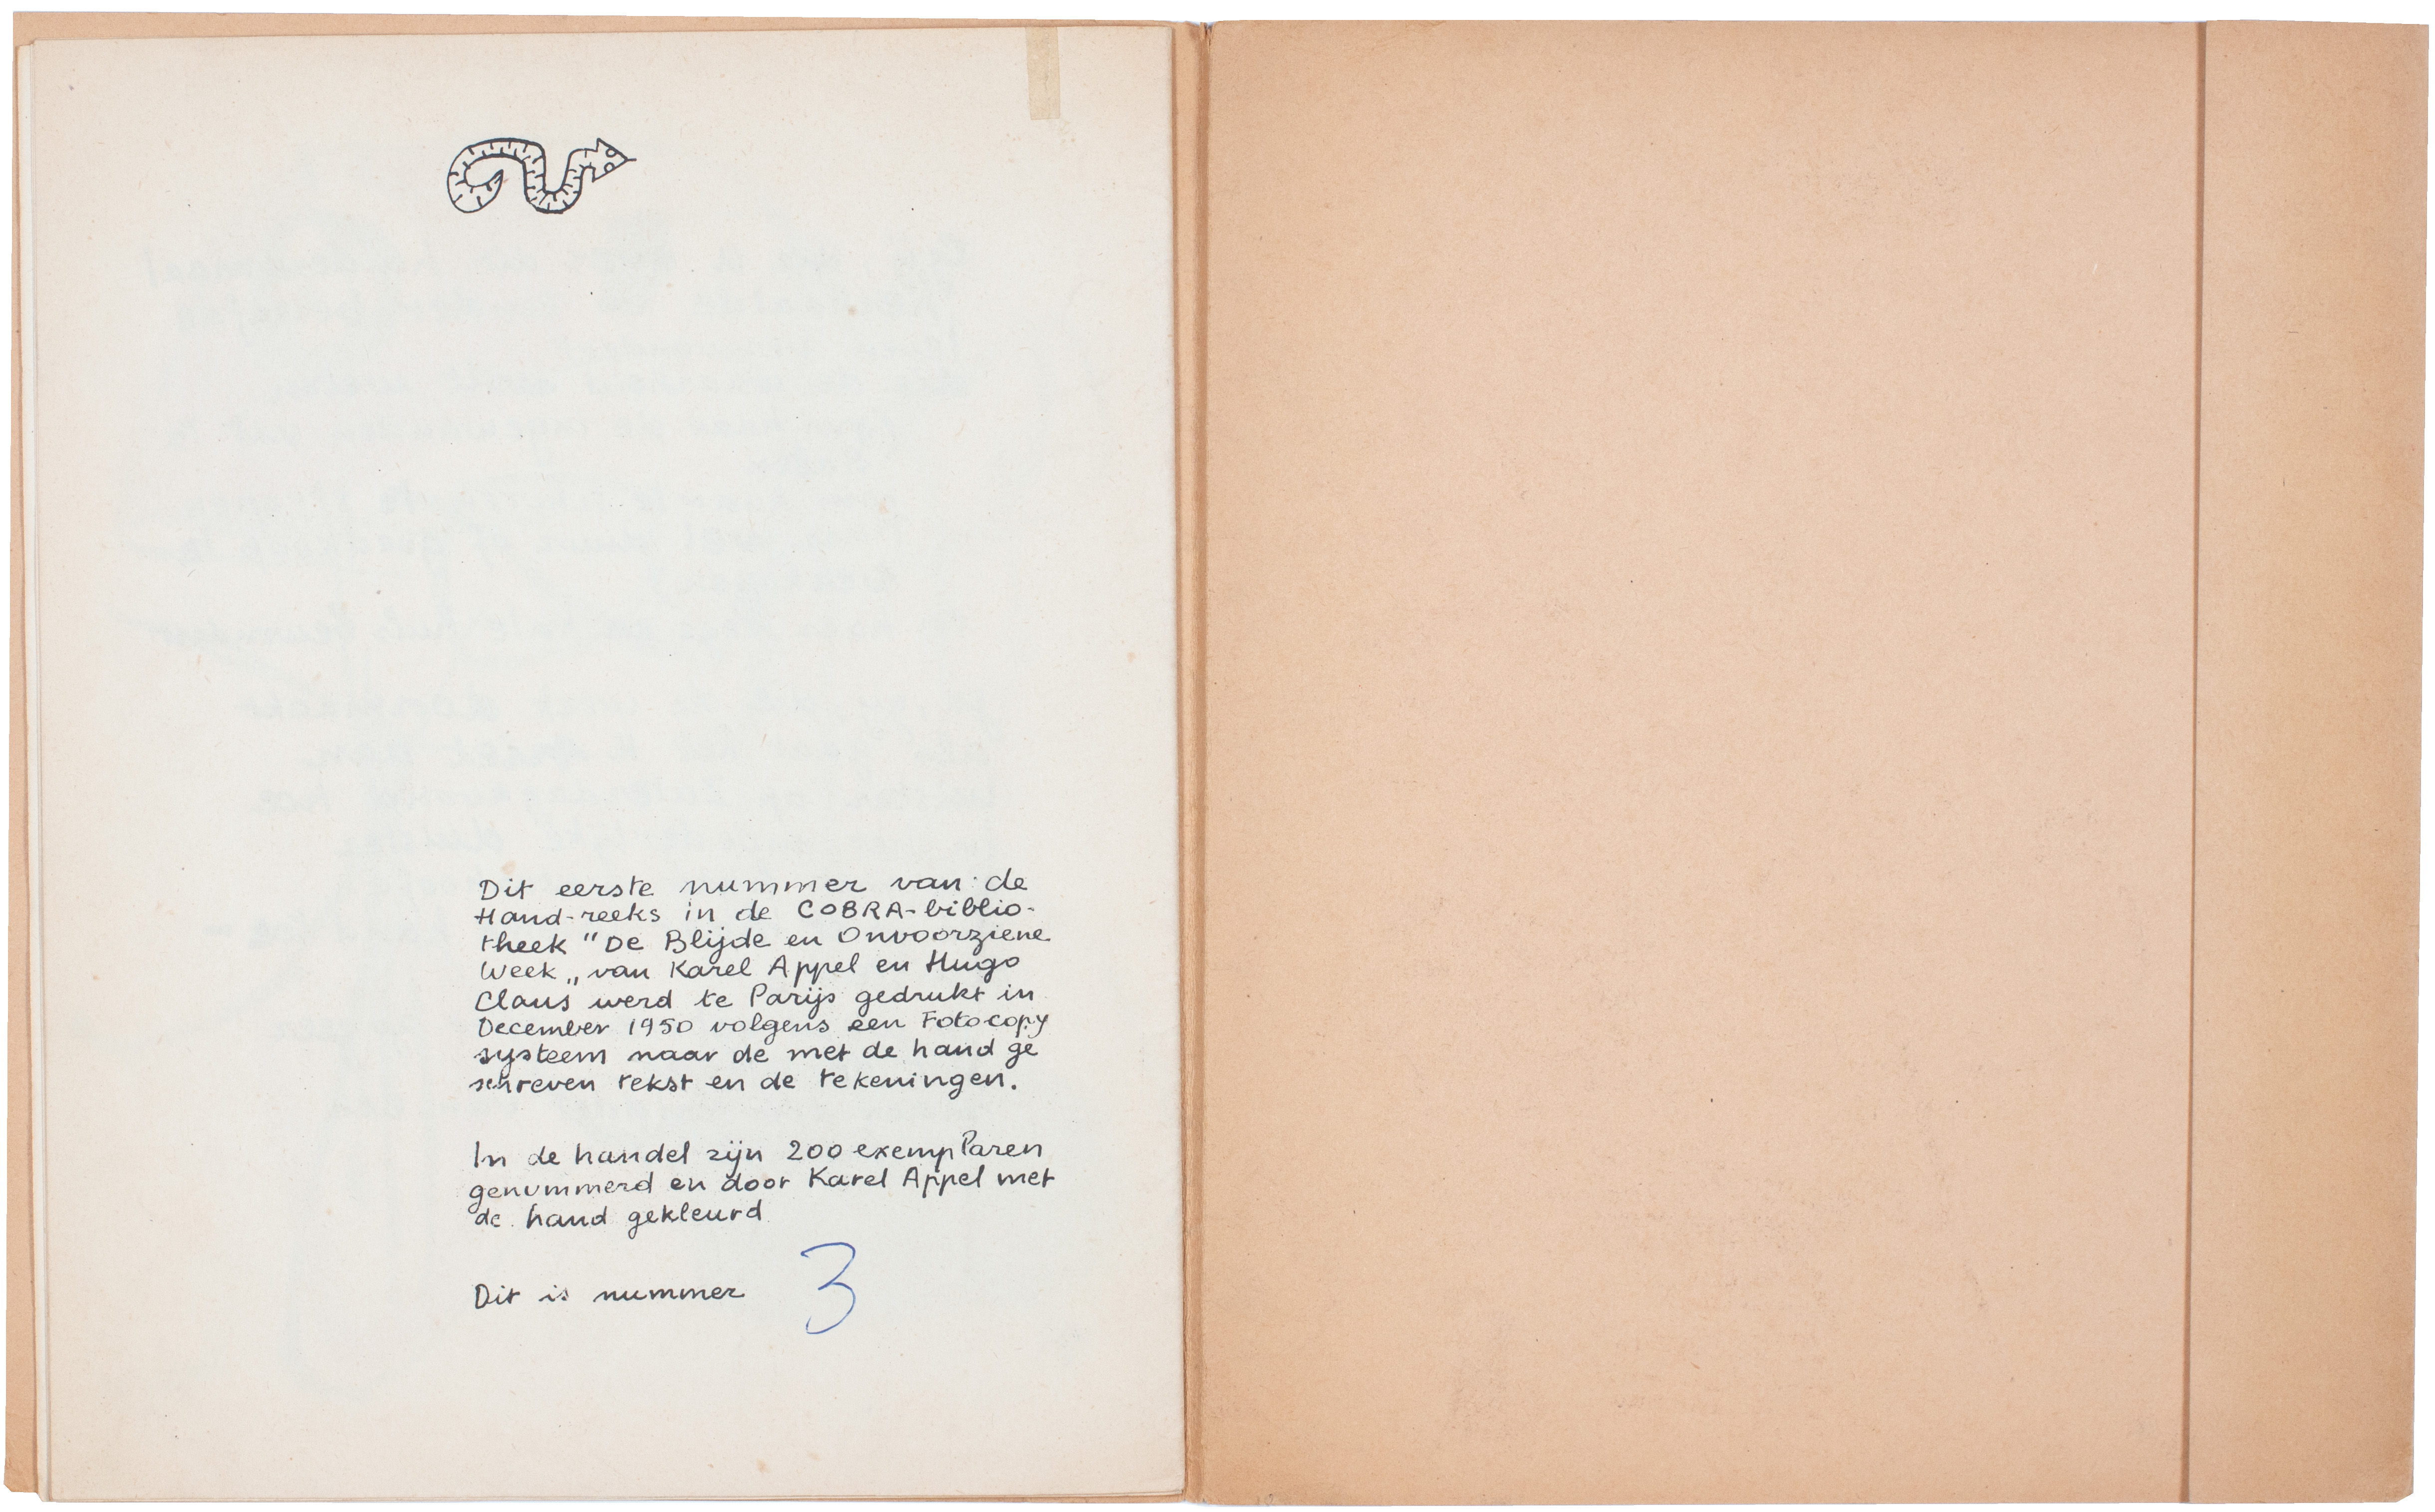 Dit eerste nummer van de
Hand-reeks in de COBRA-biblio-
theek "De Blijde en Onvoorziene
Week„ van Karel Appel en Hugo
Claus werd te Parijs gedrukt in
December 1950 volgens een Fotocopy
systeem naar de met de hand ge
schreven tekst en de tekeningen.
In de handel zijn 200 exemplaren
genummerd en door Karel Appel met
de hand gekleurd
Dit is nummer 3